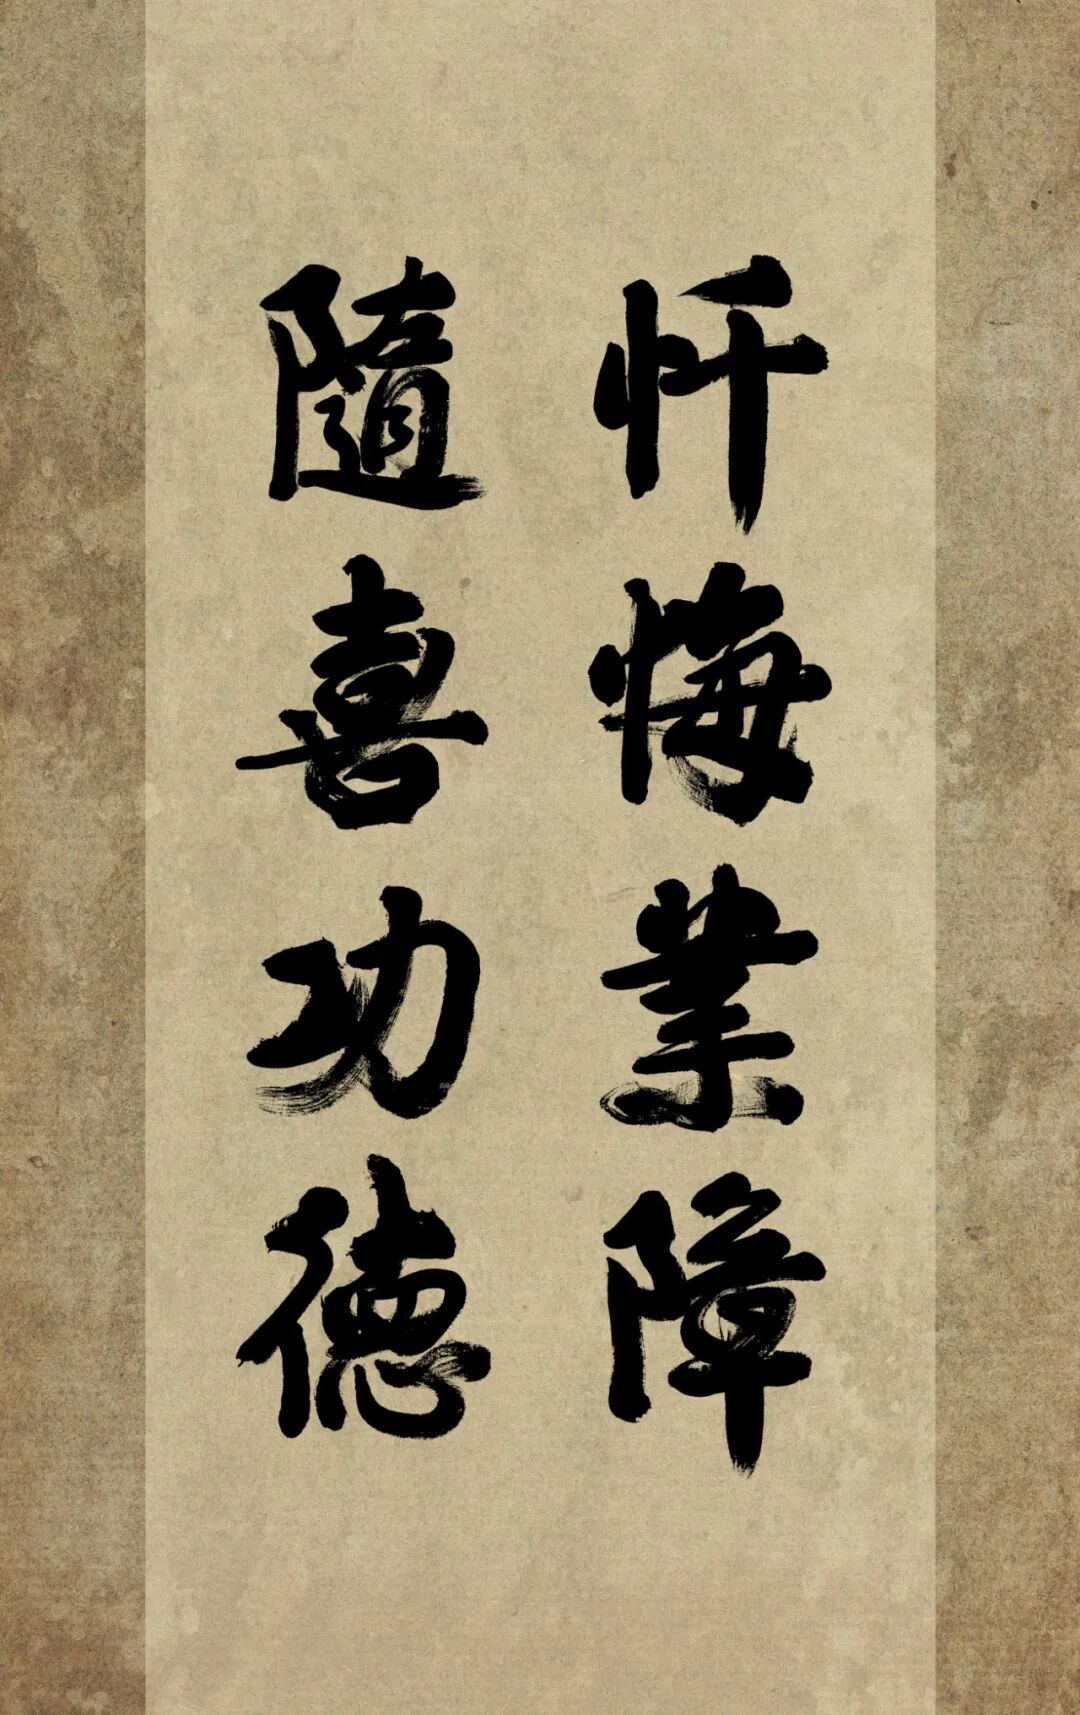 忏悔業障
隨喜功德